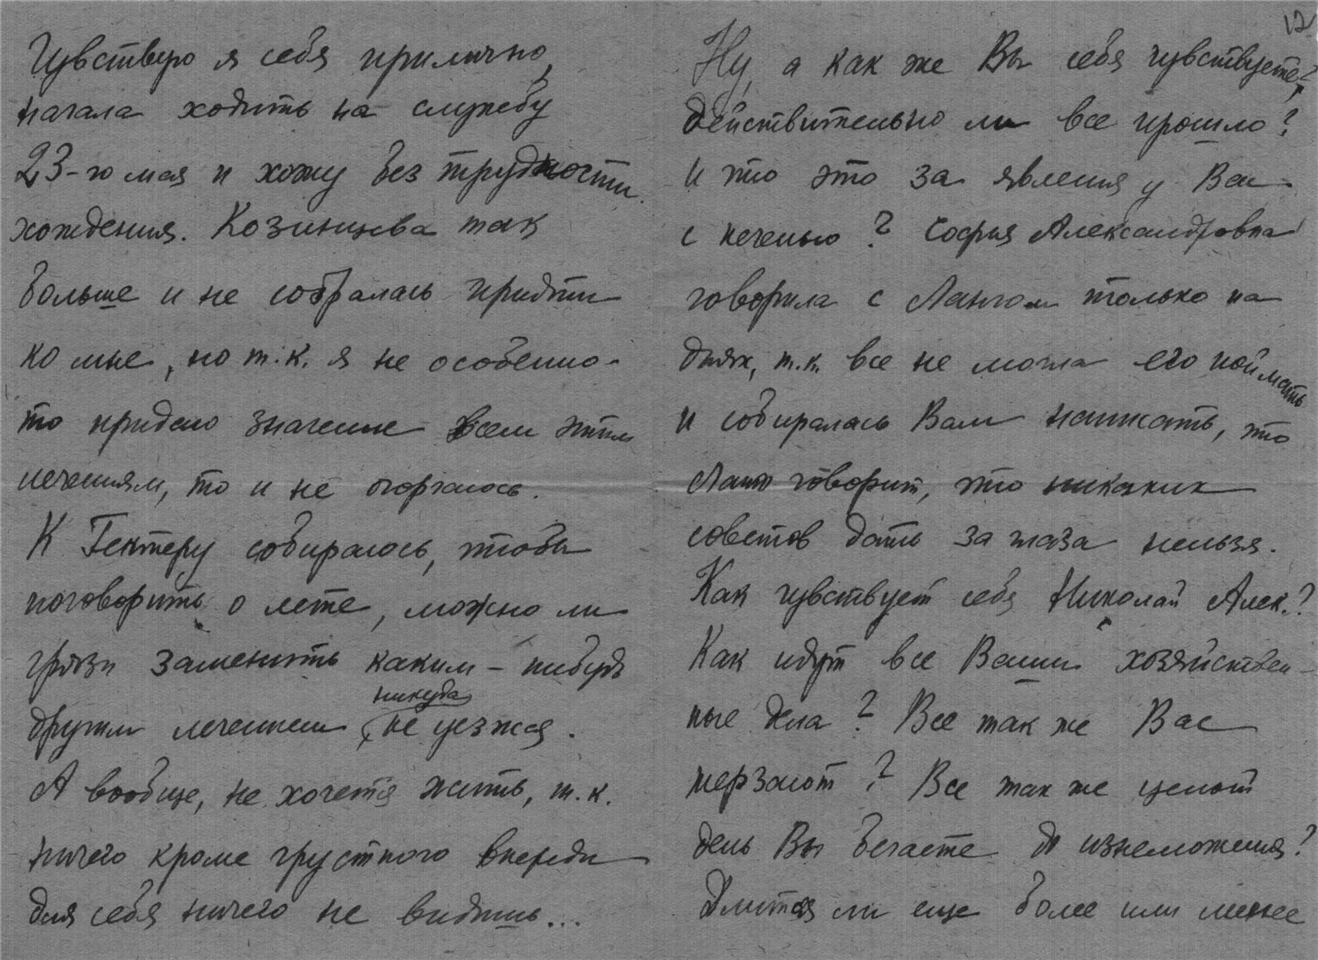 Чувствую я себя прилично,
начала ходить на службу
23-го мая и хожу без трудности
хождения. Козинцева так
больше и не собралась придти
ко мне, но т.к. я не особенно-
то придаю значение всем этим
лечениям, то и не огорчаюсь.
К Гентеру собираюсь, чтобы
поговорить о лете, можно ли
грязи заменить каким-нибудь
другим лечением, никуда не уезжая.
А вообще, не хочется жить, т.к.
ничего кроме грустного впереди
для себя ничего не видишь...
12
Ну, а как же Вы себя чувствуете?
Действительно ли все прошло?
И что это за явления у Вас
с печенью? Софья Александровна
говорила с Лангом только на
днях, т.к. все не могла его поймать
и собиралась Вам написать, что
Ланг говорит, что никаких
советов дать за глаза нельзя.
Как чувствует себя Николай Алек.?
Как идут все Ваши хозяйствен-
ные дела? Все так же Вас
терзают? Все так же целый
день Вы бегаете до изнеможения?
Длится ли еще более или менее